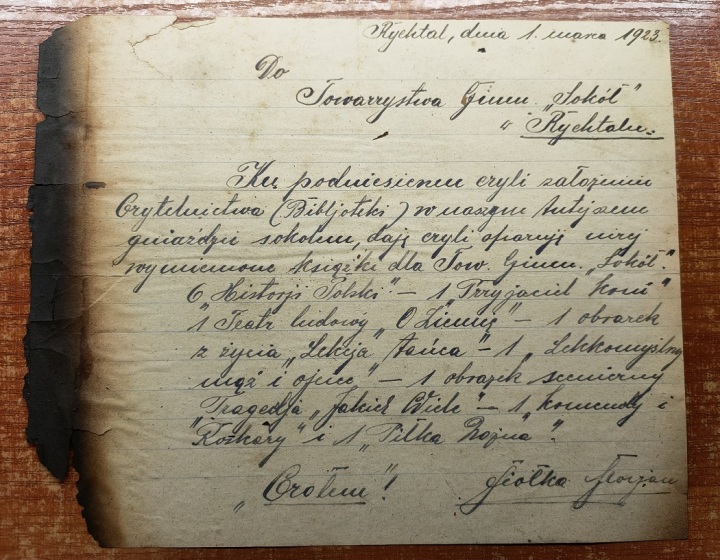 Rychtal, dnia 1. marca 1923.
Do
Towarzystwa Gimn. „Sokół"
w Rychtalu.
Ku podniesieniu czyli założeniu
Czytelnictwa (Bibljoteki) w naszym tutejszem
gniaździe sokolem, daję czyli ofiaruję niżej
wymienione książki dla Tow. Gimn. „Sokół".
6 „Historji Polski" — 1 „Przyjaciel koni"
1 Teatr ludowy „O Ziemię" — 1 obrazek
z życia „Lekcja tańca" — 1 „Lekkomyślny
mąż i ojciec" — 1 obrazek sceniczny
„Tragedja „Jakich Wiele" — 1 „Komendy i
Rozkazy" i 1 „Piłka Nożna".
„Czołem"!
Florjan